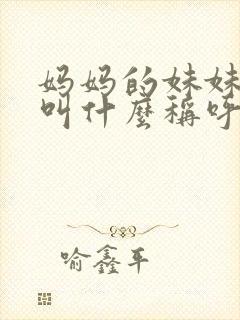 妈妈的妹妹
叫什麼稱呼
喻鑫平